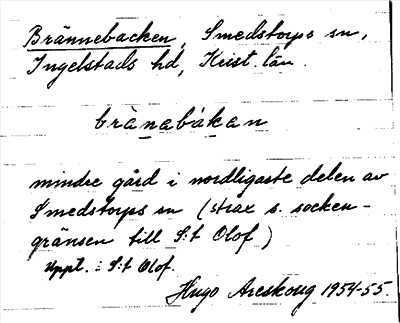 Brännebacken, Smedstorps sn,
Ingelstads hd, Krist. län.
brànabákan
mindre gård i nordligaste delen av
Smedstorps sn (strax s. socken-
gränsen till S:t Olof)
Uppt. i S:t Olof.
Hugo Areskoug 1954-55.